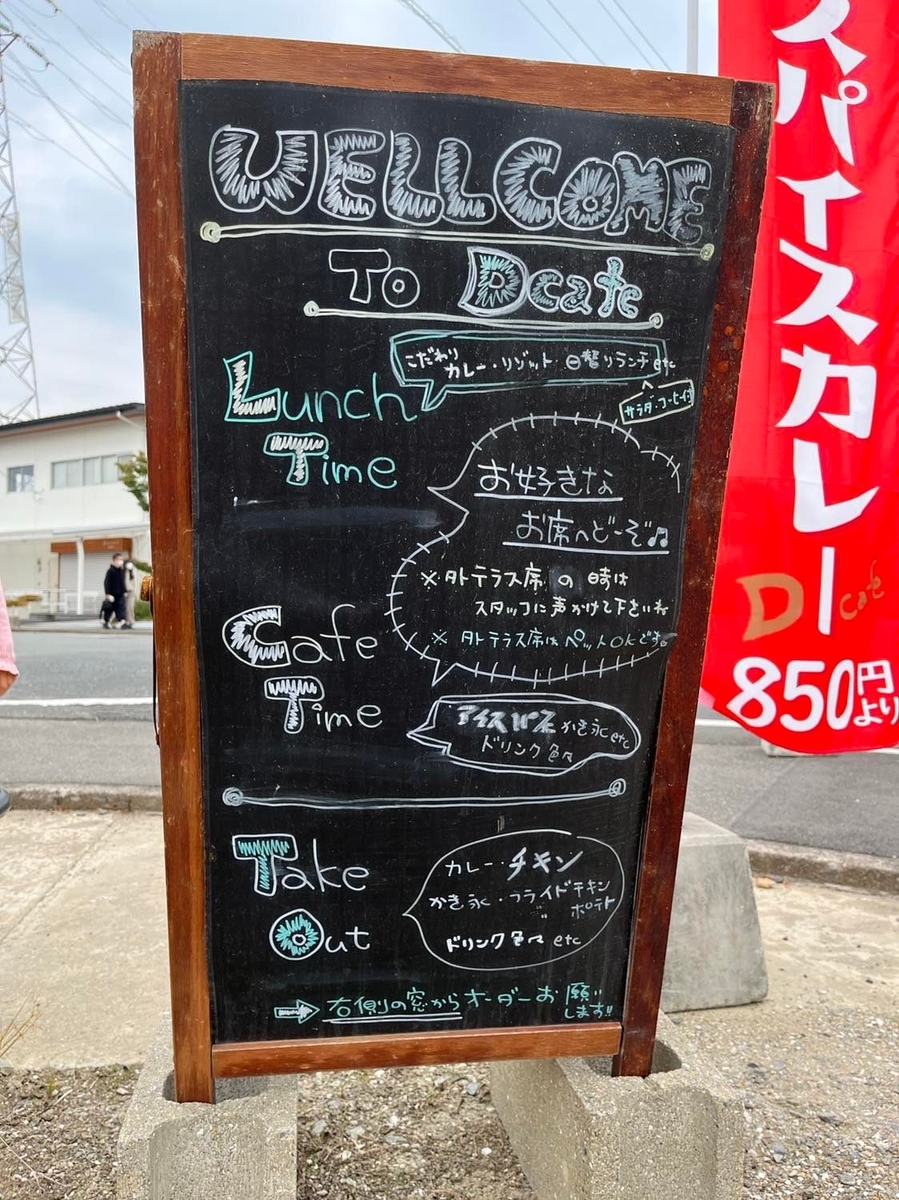 WELLCOME
To Dcafe
Lunch
Time
こだわり
カレー・リゾット 日替りランチ etc
サラダ・コーヒー付
お好きな
お席へどーぞ♫
※外テラス席の時は
スタッフに声かけて下さいね
※外テラス席はペットOKです。
Cafe
Time
アイス パフェ かき氷 etc
ドリンク色々
Take
Out
カレー・チキン
かき氷・フライドチキン
〃 ポテト
ドリンク色々 etc
⇨ 右側の窓からオーダーお願い
します!!
スパイスカレー
D cafe
850円より